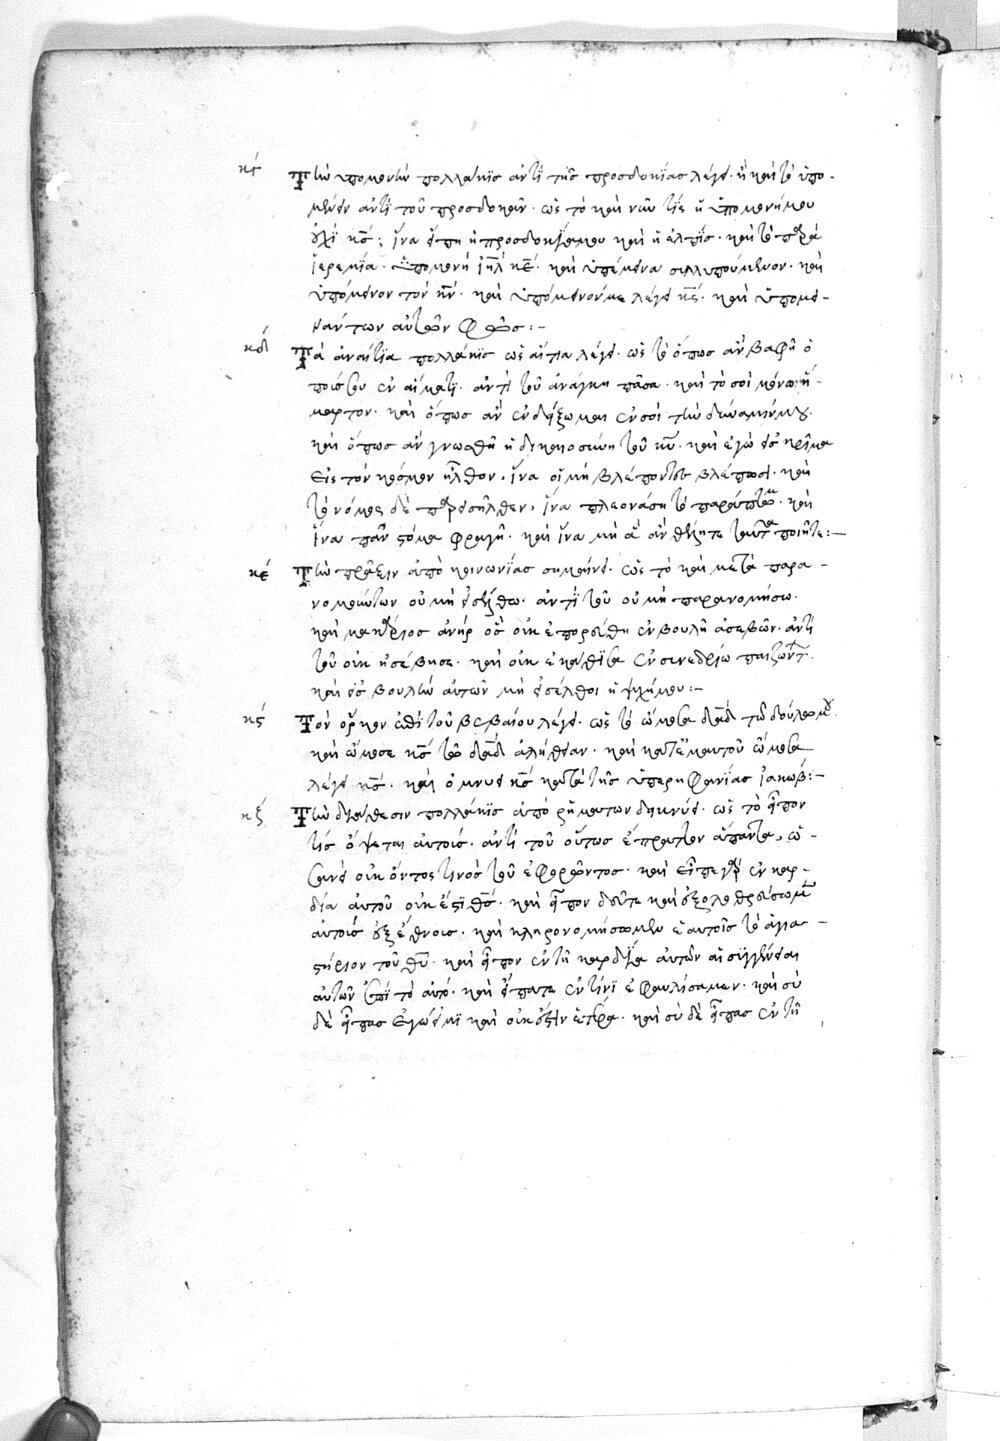 κγ Τὴν ὑπομονὴν πολλάκις ἀντὶ τῆς προσδοκίας λέγει· ἢ καὶ τὸ ὑπο-
μένειν ἀντὶ τοῦ προσδοκᾶν· ὡς τὸ καὶ νῦν τίς ἡ ὑπομονή μου
οὐχὶ κς̄; ἵνα εἴπῃ ἡ προσδοκία μου καὶ ἡ ἐλπίς· καὶ τὸ παρὰ
ἱερεμία· ὑπομονὴ ἰηλ κε̄· καὶ ὑπέμεινα συλλυπούμενον· καὶ
ὑπόμεινον τὸν κν̄· καὶ ὑπόμεινόν με λέγει κς̄· καὶ ὑπομει-
νάντων αὐτῶν φῶς:-
κδ Τὰ ἀναίτια πολλάκις ὡς αἴτια λέγει· ὡς τὸ ὅπως ἂν βαφῇ ὁ
ποῦς σου ἐν αἵματι· ἀντὶ τοῦ ἀνάγκη πᾶσα· καὶ τὸ σοὶ μόνῳ ἥ-
μαρτον· καὶ ὅπως ἂν ἐνδείξωμαι ἐν σοὶ τὴν δύναμίν μου·
καὶ ὅπως ἂν γνωσθῇ ἡ δικαιοσύνη τοῦ κῡ· καὶ ἐγὼ εἰς κρίμα
εἰς τὸν κόσμον ἦλθον, ἵνα οἱ μὴ βλέποντες βλέπωσι· καὶ
τὸ νόμος δὲ παρεισῆλθεν, ἵνα πλεονάσῃ τὸ παράπτωμα· καὶ
ἵνα πᾶν στόμα φραγῇ· καὶ ἵνα μὴ ἃ ἂν θέλητε ταῦτα ποιῆτε:-
κε Τὴν πρᾶξιν ἀπὸ κοινωνίας σημαίνει· ὡς τὸ καὶ μετὰ παρα-
νομούντων οὐ μὴ εἰσέλθω· ἀντὶ τοῦ οὐ μὴ παρανομήσω·
καὶ μακάριος ἀνὴρ ὃς οὐκ ἐπορεύθη ἐν βουλῇ ἀσεβῶν· ἀντὶ
τοῦ οὐκ ἠσέβησε· καὶ οὐκ ἐκάθισα ἐν συνεδρίῳ παιζόντων·
καὶ εἰς βουλὴν αὐτῶν μὴ εἰσέλθοι ἡ ψυχή μου:-
κς Τὸν ὅρκον ἐπὶ τοῦ βεβαίου λέγει· ὡς τὸ ὤμοσα δαδ τῷ δούλῳ μου·
καὶ ὤμοσε κς̄ τῷ δαδ ἀλήθειαν· καὶ κατ' ἐμαυτοῦ ὤμοσα
λέγει κς̄· καὶ ὀμνύει κς̄ κατὰ τῆς ὑπερηφανίας ἰακώβ:-
κζ Τὴν διάθεσιν πολλάκις ἀπὸ ρημάτων δεικνύει· ὡς τὸ εἶπον
τίς ὄψεται αὐτούς· ἀντὶ τοῦ οὕτως ἔπραττον ἅπαντα, ὡ-
σανεὶ οὐκ ὄντος τινὸς τοῦ ἐφορῶντος· καὶ εἶπε γὰρ ἐν καρ-
δίᾳ αὐτοῦ οὐκ ἔστι θς̄· καὶ εἶπον δεῦτε καὶ ἐξολοθρεύσωμεν
αὐτοὺς ἐξ ἔθνους· καὶ κληρονομήσωμεν ἑαυτοῖς τὸ ἁγια-
στήριον τοῦ θῡ· καὶ εἶπον ἐν τῇ καρδίᾳ αὐτῶν αἱ συγγένειαι
αὐτῶν ἐπὶ τὸ αὐτό· καὶ εἴπατε ἐν τίνι ἐφαυλίσαμεν· καὶ σὺ
δὲ εἶπας ἐγώ εἰμι καὶ οὐκ ἔστιν ἑτέρα· καὶ σὺ δὲ εἶπας ἐν τῇ